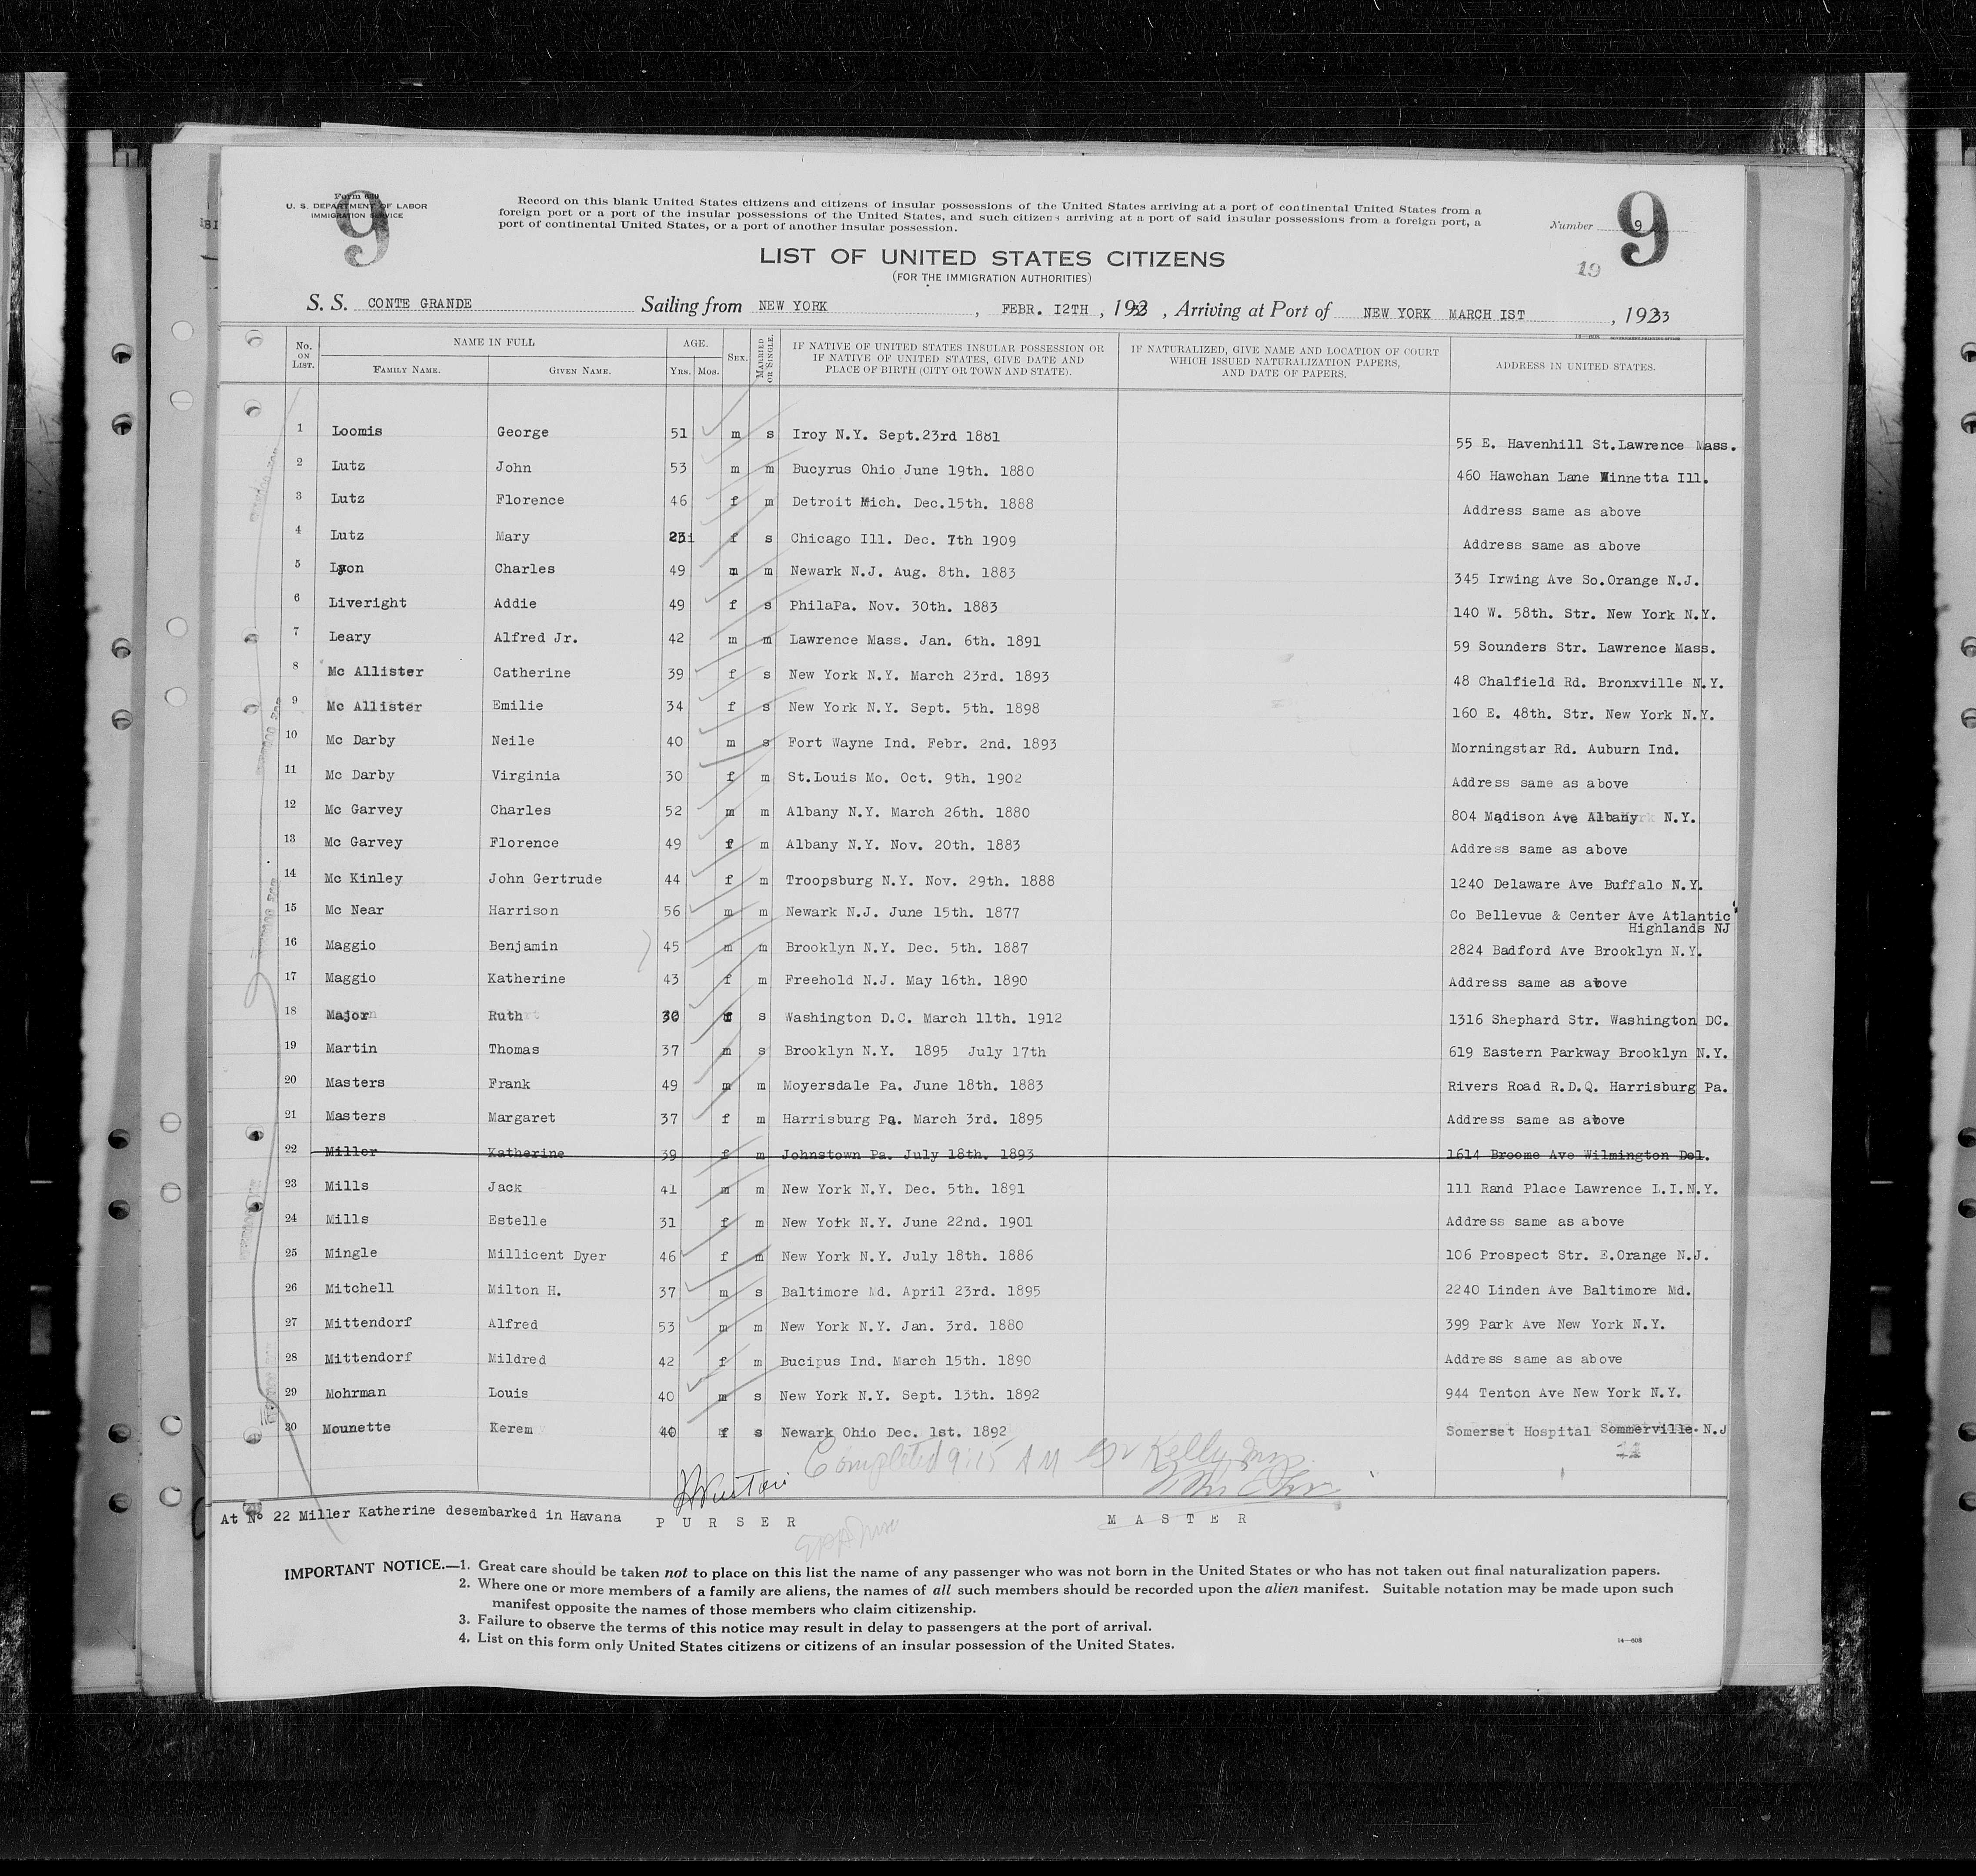 9
Form 630
U. S. DEPARTMENT OF LABOR
IMMIGRATION SERVICE
Record on this blank United States citizens and citizens of insular possessions of the United States arriving at a port of continental United States from a
foreign port or a port of the insular possessions of the United States, and such citizens arriving at a port of said insular possessions from a foreign port, a
port of continental United States, or a port of another insular possession.
Number 9
9
19
LIST OF UNITED STATES CITIZENS
(FOR THE IMMIGRATION AUTHORITIES)
S. S. CONTE GRANDE Sailing from NEW YORK , FEBR. I2TH , 1933 , Arriving at Port of NEW YORK MARCH IST , 1933
No. ON LIST. NAME IN FULL FAMILY NAME. GIVEN NAME. AGE. Yrs. Mos. SEX. MARRIED OR SINGLE. IF NATIVE OF UNITED STATES INSULAR POSSESSION OR IF NATIVE OF UNITED STATES, GIVE DATE AND PLACE OF BIRTH (CITY OR TOWN AND STATE). IF NATURALIZED, GIVE NAME AND LOCATION OF COURT WHICH ISSUED NATURALIZATION PAPERS, AND DATE OF PAPERS. ADDRESS IN UNITED STATES.
1 Loomis George 51 m s Iroy N.Y. Sept.23rd 1881 55 E. Havenhill St.Lawrence Mass.
2 Lutz John 53 m m Bucyrus Ohio June 19th. 1880 460 Hawchan Lane Winnetta Ill.
3 Lutz Florence 46 f m Detroit Mich. Dec.15th. 1888 Address same as above
4 Lutz Mary 23 f s Chicago Ill. Dec. 7th 1909 Address same as above
5 Lyon Charles 49 m m Newark N.J. Aug. 8th. 1883 345 Irwing Ave So.Orange N.J.
6 Liveright Addie 49 f s PhilaPa. Nov. 30th. 1883 140 W. 58th. Str. New York N.Y.
7 Leary Alfred Jr. 42 m m Lawrence Mass. Jan. 6th. 1891 59 Sounders Str. Lawrence Mass.
8 Mc Allister Catherine 39 f s New York N.Y. March 23rd. 1893 48 Chalfield Rd. Bronxville N.Y.
9 Mc Allister Emilie 34 f s New York N.Y. Sept. 5th. 1898 160 E. 48th. Str. New York N.Y.
10 Mc Darby Neile 40 m s Fort Wayne Ind. Febr. 2nd. 1893 Morningstar Rd. Auburn Ind.
11 Mc Darby Virginia 30 f m St.Louis Mo. Oct. 9th. 1902 Address same as above
12 Mc Garvey Charles 52 m m Albany N.Y. March 26th. 1880 804 Madison Ave Albany N.Y.
13 Mc Garvey Florence 49 f m Albany N.Y. Nov. 20th. 1883 Address same as above
14 Mc Kinley John Gertrude 44 f m Troopsburg N.Y. Nov. 29th. 1888 1240 Delaware Ave Buffalo N.Y.
15 Mc Near Harrison 56 m m Newark N.J. June 15th. 1877 Co Bellevue & Center Ave Atlantic
Highlands NJ
16 Maggio Benjamin 45 m m Brooklyn N.Y. Dec. 5th. 1887 2824 Badford Ave Brooklyn N.Y.
17 Maggio Katherine 43 f m Freehold N.J. May 16th. 1890 Address same as above
18 Major Ruth 30 f s Washington D.C. March 11th. 1912 1316 Shephard Str. Washington DC.
19 Martin Thomas 37 m s Brooklyn N.Y. 1895 July 17th 619 Eastern Parkway Brooklyn N.Y.
20 Masters Frank 49 m m Moyersdale Pa. June 18th. 1883 Rivers Road R.D.Q. Harrisburg Pa.
21 Masters Margaret 37 f m Harrisburg Pa. March 3rd. 1895 Address same as above
22 Miller Katherine 39 f m Johnstown Pa. July 18th. 1893 1614 Broome Ave Wilmington Del.
23 Mills Jack 41 m m New York N.Y. Dec. 5th. 1891 111 Rand Place Lawrence L.I.N.Y.
24 Mills Estelle 31 f m New York N.Y. June 22nd. 1901 Address same as above
25 Mingle Millicent Dyer 46 f m New York N.Y. July 18th. 1886 106 Prospect Str. E.Orange N.J.
26 Mitchell Milton H. 37 m s Baltimore Md. April 23rd. 1895 2240 Linden Ave Baltimore Md.
27 Mittendorf Alfred 53 m m New York N.Y. Jan. 3rd. 1880 399 Park Ave New York N.Y.
28 Mittendorf Mildred 42 f m Bucipus Ind. March 15th. 1890 Address same as above
29 Mohrman Louis 40 m s New York N.Y. Sept. 13th. 1892 944 Tenton Ave New York N.Y.
30 Mounette Kerem 40 f s Newark Ohio Dec. 1st. 1892 Somerset Hospital Sommerville. N.J
Completed 9:15 AM Kelly
At No 22 Miller Katherine desembarked in Havana
P U R S E R
M A S T E R
IMPORTANT NOTICE.—1. Great care should be taken not to place on this list the name of any passenger who was not born in the United States or who has not taken out final naturalization papers.
2. Where one or more members of a family are aliens, the names of all such members should be recorded upon the alien manifest. Suitable notation may be made upon such
manifest opposite the names of those members who claim citizenship.
3. Failure to observe the terms of this notice may result in delay to passengers at the port of arrival.
4. List on this form only United States citizens or citizens of an insular possession of the United States.
14—608